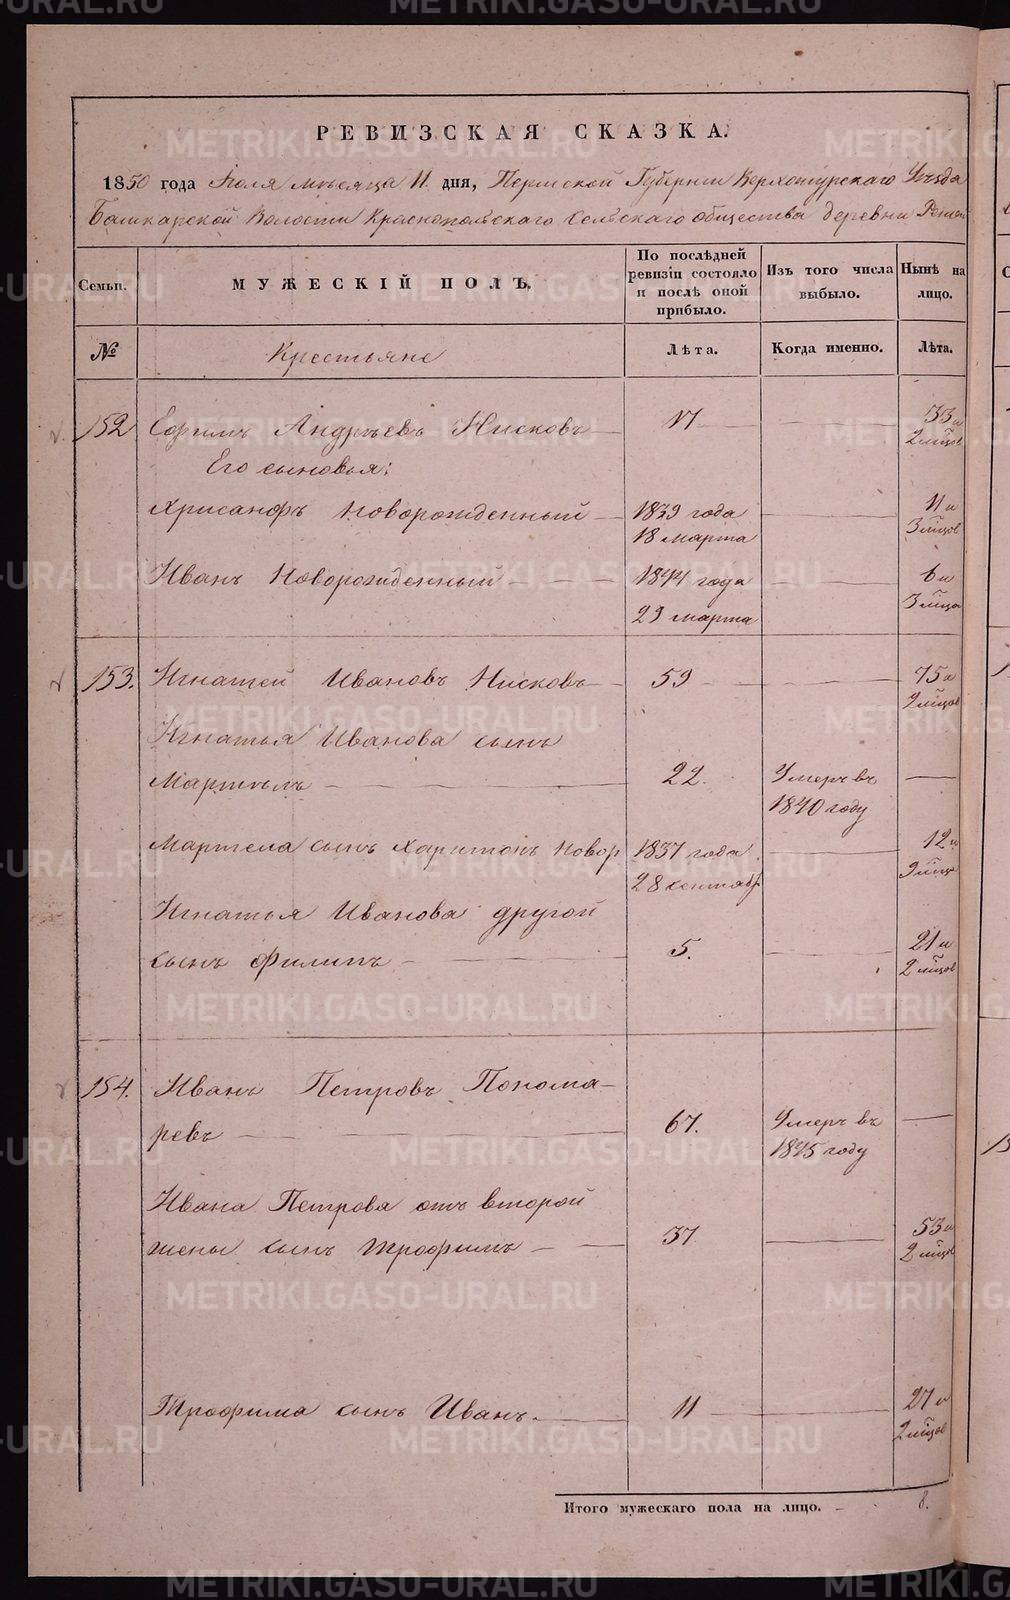 РЕВИЗСКАЯ СКАЗКА.
1850 года Іюля мѣсяца 11 дня, Пермской Губерніи Верхотурскаго Уѣзда
Башкарской Волости Краснопольскаго сельскаго общества деревни
Семьи. МУЖЕСКІЙ ПОЛЪ. По послѣдней ревизіи состояло и послѣ оной прибыло. Изъ того числа выбыло. Нынѣ на лицо.
№ Крестьяне Лѣта. Когда именно. Лѣта.
152 Ефимъ Андрѣевъ Нисковъ 17 33 и
2 мѣсяц
Его сыновья:
Хрисанфъ новорожденный 1839 года 11 и
18 марта 3 мѣсяц
Иванъ Новорожденный 1844 года 6 и
29 марта 3 мѣсяц
153. Игнатей Ивановъ Нисковъ 59 75 и
2 мѣсяц
Игнатья Иванова сынъ
Мартемъ 22. Умеръ въ
1840 году
сынъ Харитонъ новор 1837 года 12 и
28 сентябр 9 мѣсяц
Игнатья Иванова другой
сынъ Филипъ 5. 21 и
2 мѣсяц
154. Иванъ Петровъ Понома-
ревъ 67. Умеръ въ
1845 году
Ивана Петрова отъ второй
жены сынъ Трофимъ 37 53 и
2 мѣсяц
Трофима сынъ Иванъ. 11 27 и
2 мѣсяц
Итого мужескаго пола на лицо. 8.
METRIKI.GASO-URAL.RU